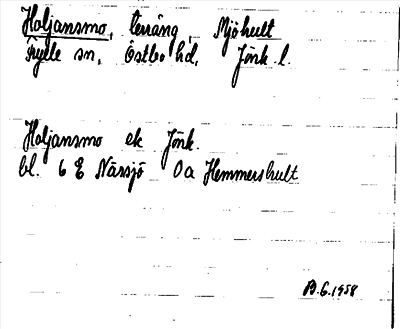 Holjansmo, terräng, Mjöhult
Frylle sn, Östbo hd, Jönk. l.
Holjansmo ek Jönk.
bl. 6 E Nässjö 0a Hemmershult
B.G. 1958